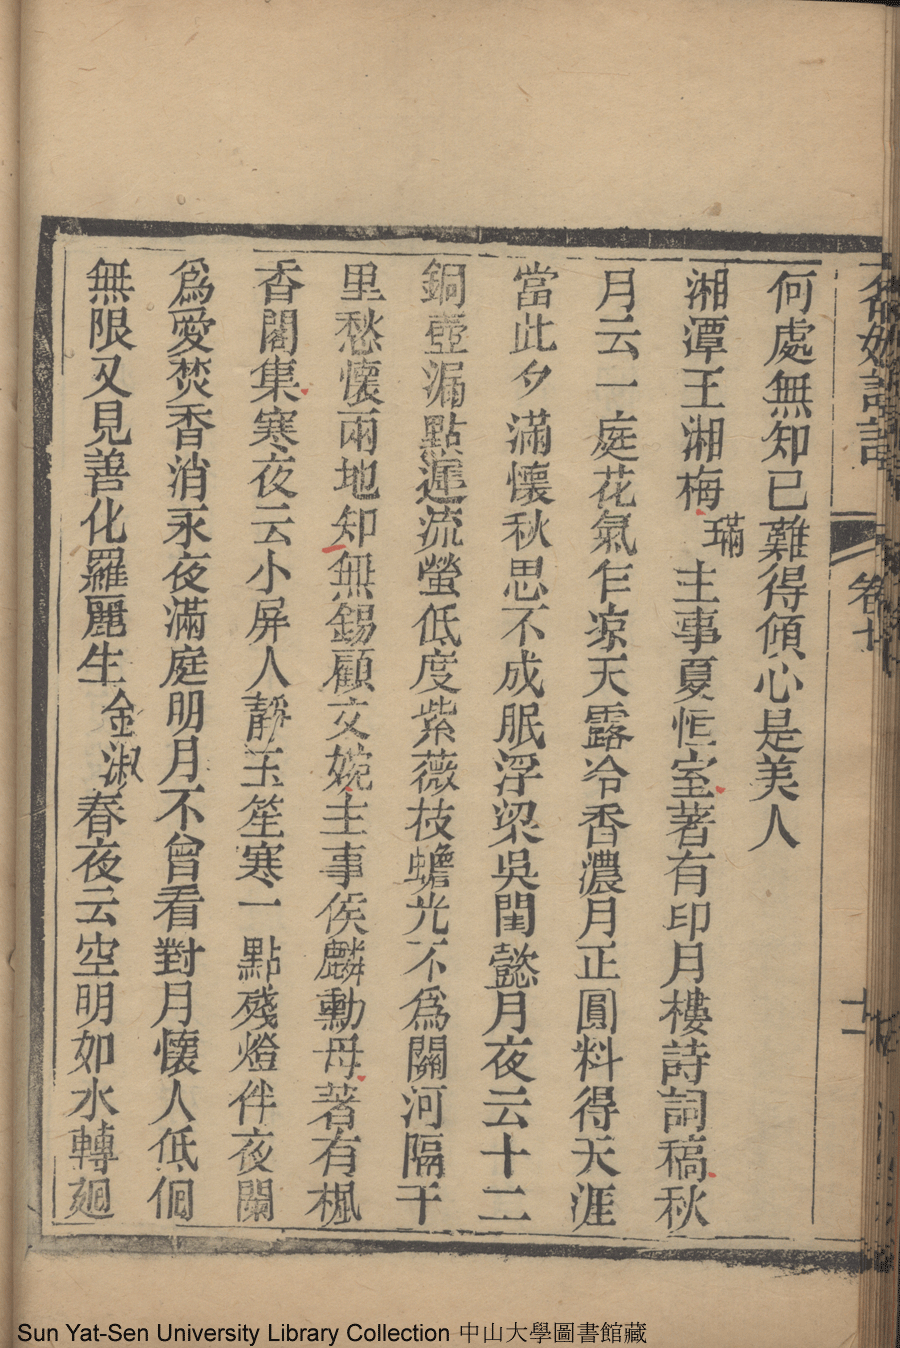 名媛詩話
卷七
十一
何處無知已難得傾心是美人
湘潭王湘梅璊主事夏恒室著有印月樓詩詞稿秋
月云一庭花氣乍凉天露冷香濃月正圓料得天涯
當此夕滿懷秋思不成眠浮梁吳閨懿月夜云十二
銅壺漏點遲流螢低度紫薇枝蟾光不爲關河隔千
里愁懷兩地知無錫顧文婉主事侯麟勳母著有楓
香閣集寒夜云小屏人靜玉笙寒一點殘燈伴夜闌
爲愛焚香消永夜滿庭明月不曾看對月懷人低佪
無限又見善化羅麗生金淑春夜云空明如水轉廻
Sun Yat-Sen University Library Collection 中山大學圖書館藏